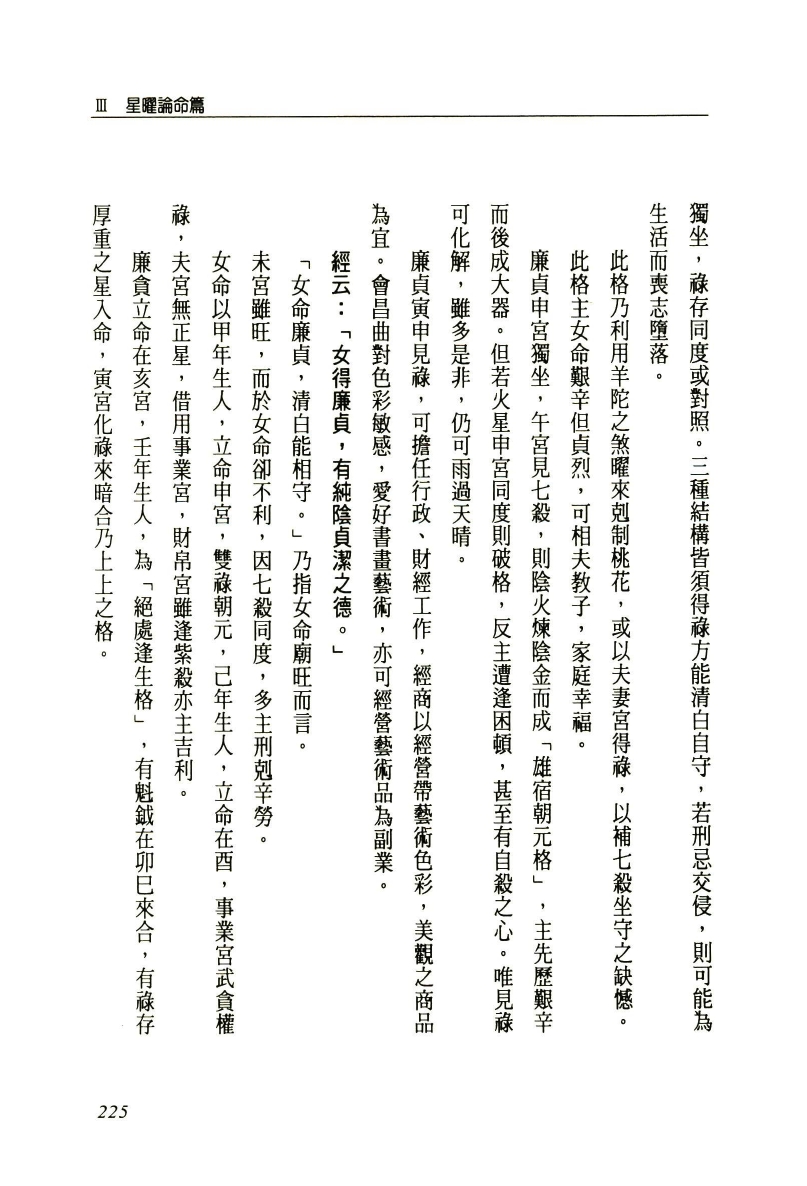 Ⅲ 星曜論命篇
獨坐，祿存同度或對照。三種結構皆須得祿方能清白自守，若刑忌交侵，則可能為
生活而喪志墮落。
此格乃利用羊陀之煞曜來剋制桃花，或以夫妻宮得祿，以補七殺坐守之缺憾。
此格主女命艱辛但貞烈，可相夫教子，家庭幸福。
廉貞申宮獨坐，午宮見七殺，則陰火煉陰金而成「雄宿朝元格」，主先歷艱辛
而後成大器。但若火星申宮同度則破格，反主遭逢困頓，甚至有自殺之心。唯見祿
可化解，雖多是非，仍可雨過天晴。
廉貞寅申見祿，可擔任行政、財經工作，經商以經營帶藝術色彩，美觀之商品
為宜。會昌曲對色彩敏感，愛好書畫藝術，亦可經營藝術品為副業。
經云：「女得廉貞，有純陰貞潔之德。」
「女命廉貞，清白能相守。」乃指女命廟旺而言。
未宮雖旺，而於女命卻不利，因七殺同度，多主刑剋辛勞。
女命以甲年生人，立命申宮，雙祿朝元，己年生人，立命在酉，事業宮武貪權
祿，夫宮無正星，借用事業宮，財帛宮雖逢紫殺亦主吉利。
廉貪立命在亥宮，壬年生人，為「絕處逢生格」，有魁鉞在卯巳來合，有祿存
厚重之星入命，寅宮化祿來暗合乃上上之格。
225